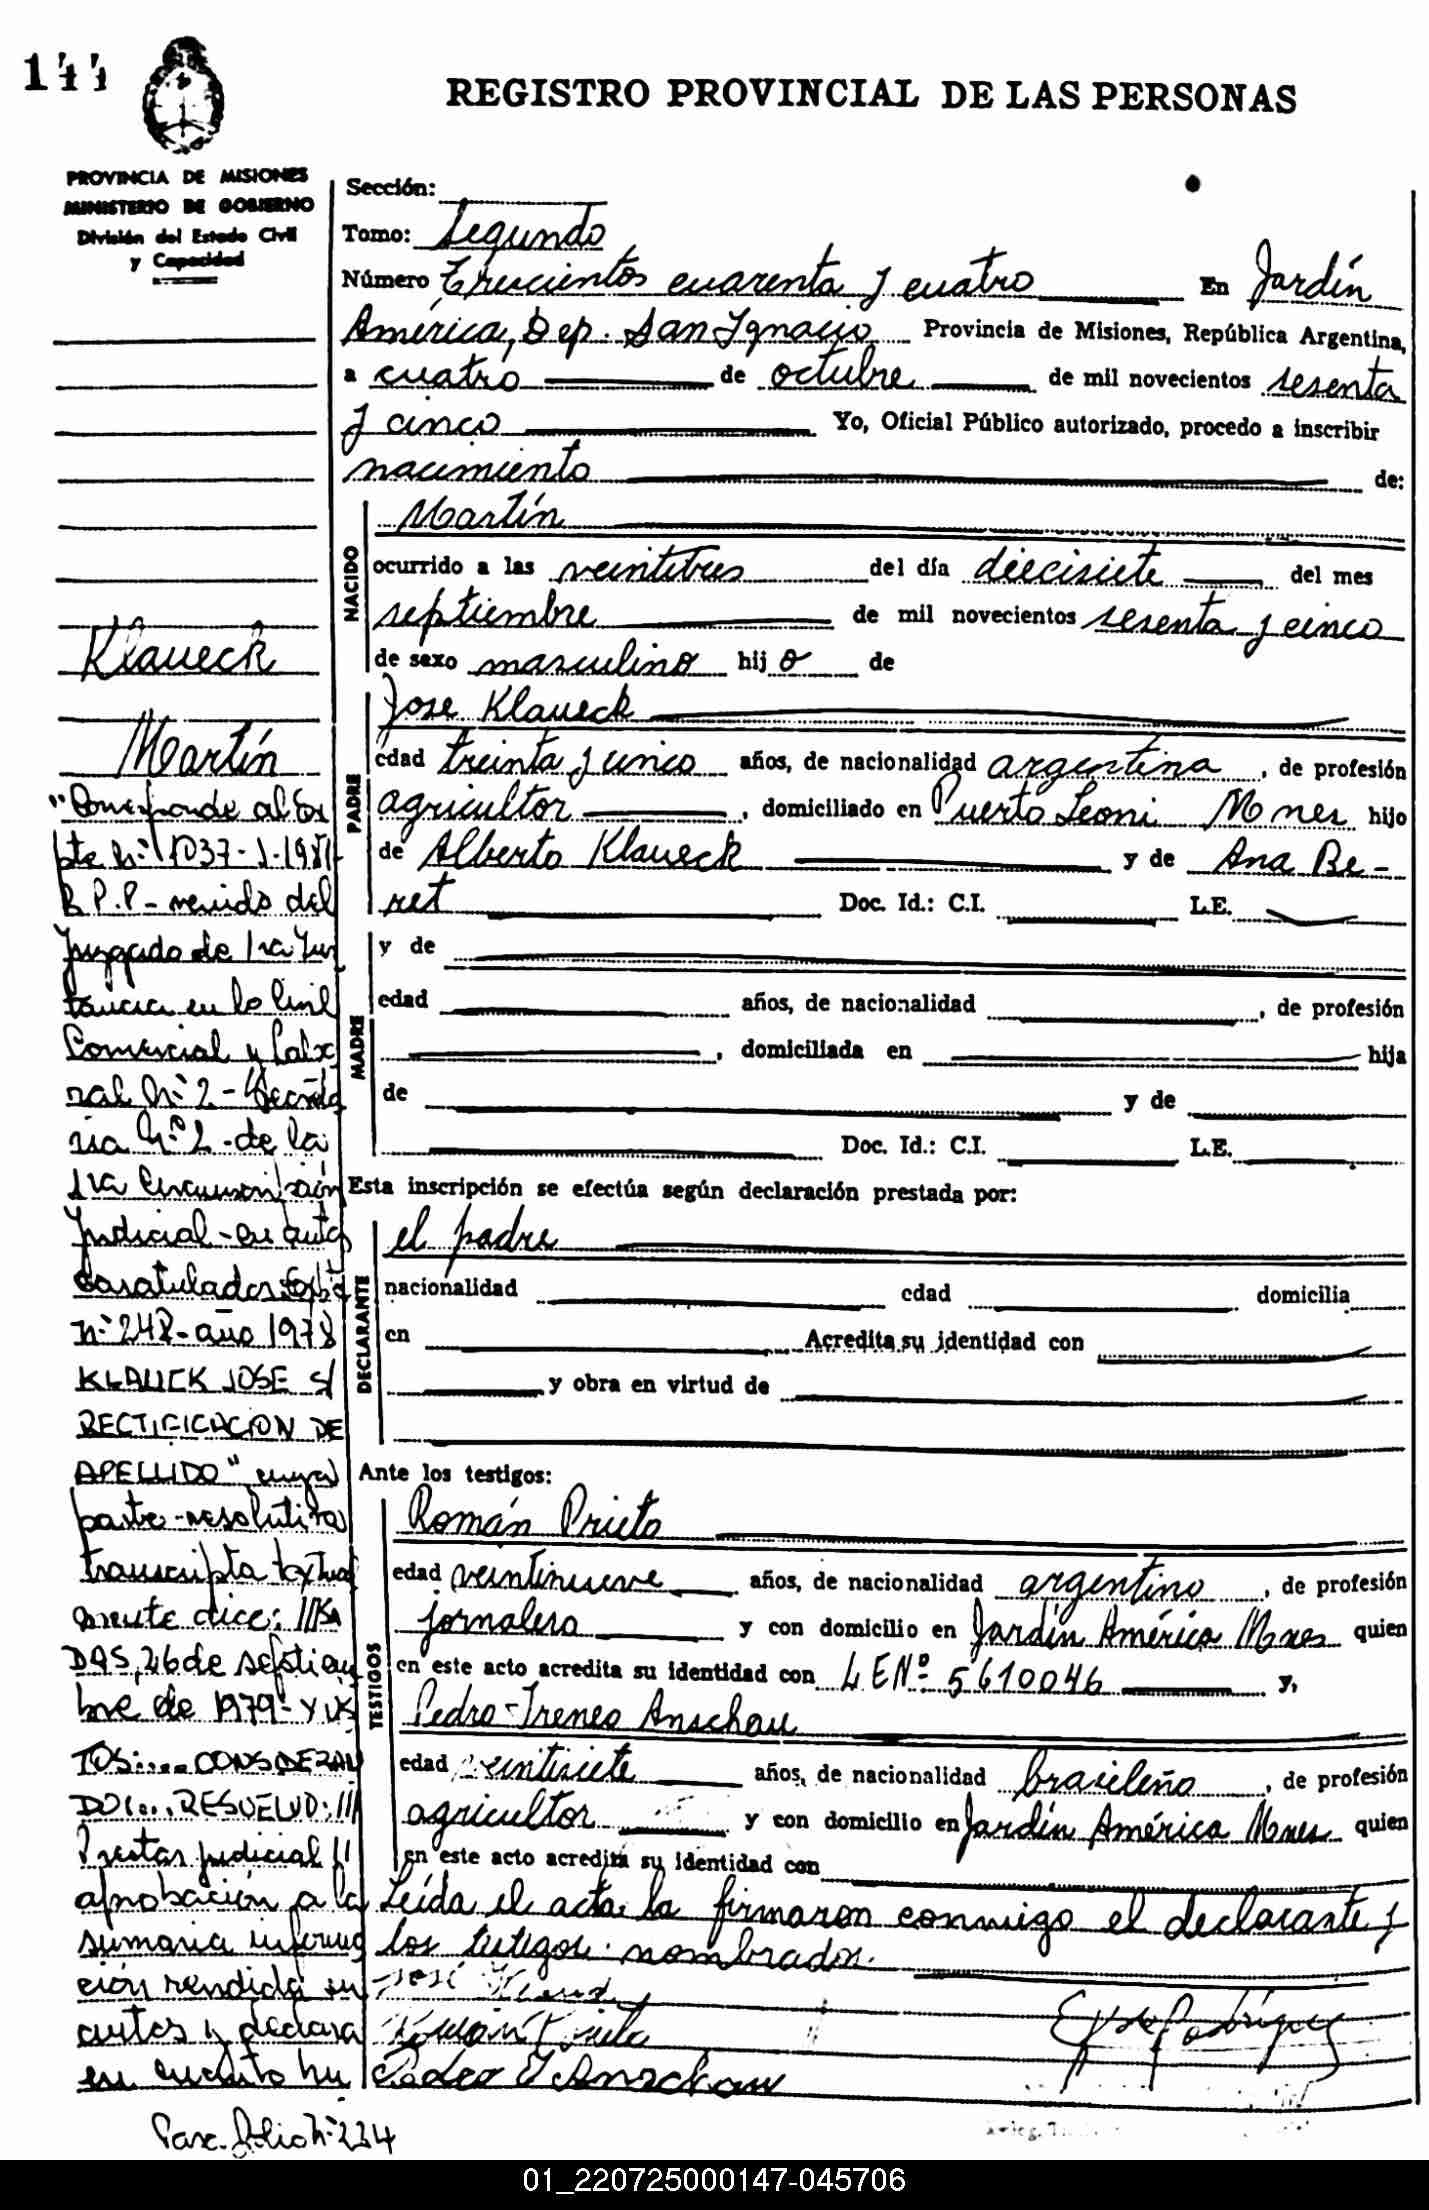 144
REGISTRO PROVINCIAL DE LAS PERSONAS
PROVINCIA DE MISIONES
MINISTERIO DE GOBIERNO
División del Estado Civil
y Capacidad
Sección:
Tomo: Segundo
Número Trescientos cuarenta y cuatro En Jardín
América, Dep. San Ignacio Provincia de Misiones, República Argentina,
a cuatro de octubre de mil novecientos sesenta
y cinco Yo, Oficial Público autorizado, procedo a inscribir
nacimiento de:
NACIDO
Martín
ocurrido a las veintitres del día diecisiete del mes
septiembre de mil novecientos sesenta y cinco
de sexo masculino hij o de
PADRE
Jose Klaueck
edad treinta y cinco años, de nacionalidad argentina, de profesión
agricultor, domiciliado en Puerto Leoni Mnes hijo
de Alberto Klaueck y de Ana Be-
ret Doc. Id.: C.I. L.E.
MADRE
y de
edad años, de nacionalidad, de profesión
, domiciliada en hija
de y de
Doc. Id.: C.I. L.E.
Esta inscripción se efectúa según declaración prestada por:
DECLARANTE
el padre
nacionalidad edad domicilia
en Acredita su identidad con
y obra en virtud de
Ante los testigos:
TESTIGOS
Román Prieto
edad veintinueve años, de nacionalidad argentino, de profesión
jornalero y con domicilio en Jardín América Mnes quien
en este acto acredita su identidad con L E Nº 5610046 y,
Pedro Ireneo Anschau
edad veintisiete años, de nacionalidad brasileño, de profesión
agricultor y con domicilio en Jardín América Mnes quien
en este acto acredita su identidad con
Leída el acta la firmaron conmigo el declarante y
los testigos nombrados.
José
Román Prieto
Pedro I Anschau
Rodríguez
Klaueck
Martín
"Corresponde al Ex
pte Nº 1037-J-1981-
R.P.P - venido del
Juzgado de 1ra Ins
tancia en lo Civil
Comercial y Labo
ral Nº 2 - Secreta
ria Nº 2 - de la
1ra Circunscripción
Judicial - en autos
Caratulados: Expte
Nº 248 - año 1978
KLAUCK JOSE S/
RECTIFICACION DE
APELLIDO" cuya
parte resolutiva
transcripta textual
mente dice: ///SA
DAS, 26 de septiem
bre de 1979- Y VIS
TOS:.... CONSIDERAN
DO:... RESUELVO: ///
Prestar judicial //
aprobación a la
sumaria informa
ción rendida en
autos y declara
en cuanto hu
Pasa folio Nº 224
01_220725000147-045706